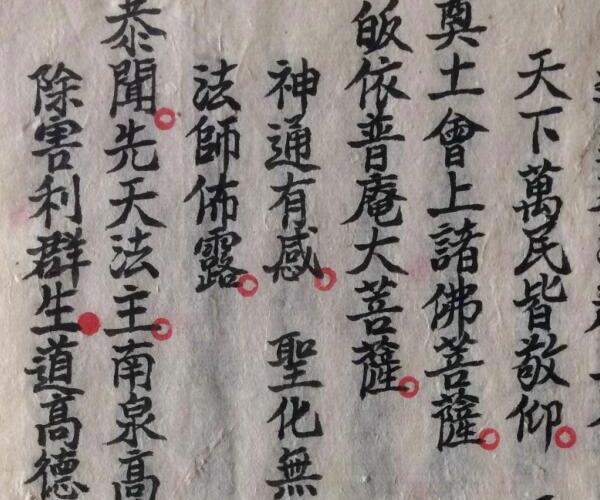 天下萬民皆敬仰
奠土會上諸佛菩薩
皈依普庵大菩薩
神通有感 聖化無
法師佈露
恭聞先天法主南泉高
除害利群生道高德